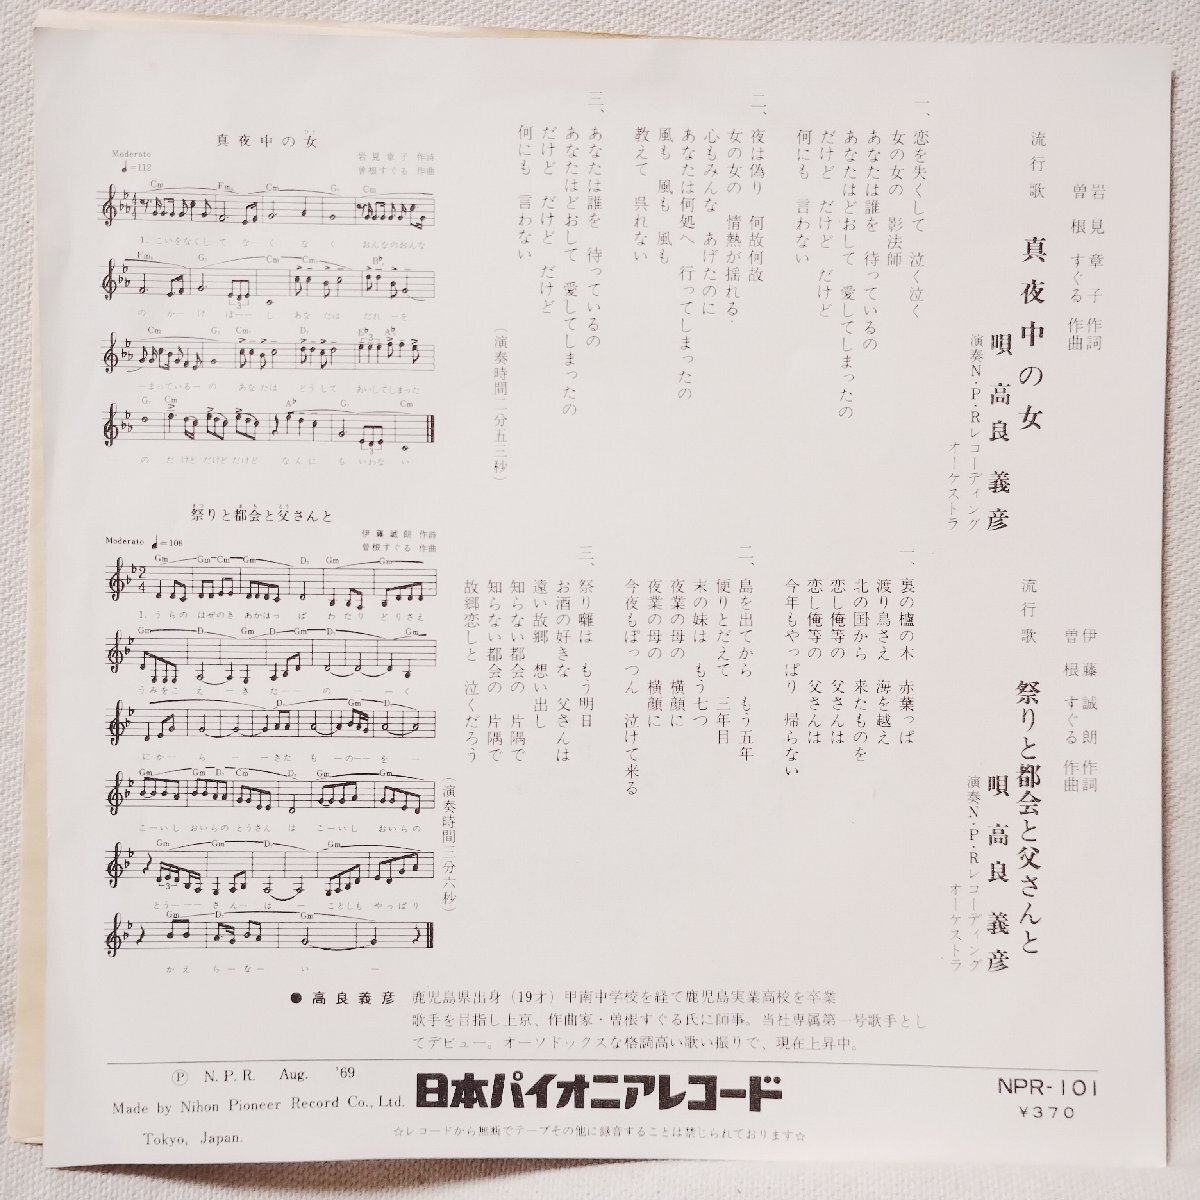 岩見章子 作詞
曽根すぐる 作曲
流行歌 真夜中の女
唄 高良義彦
演奏N・P・Rレコーディング
オーケストラ
一、恋を失くして 泣く泣く
女の女の 影法師
あなたは誰を 待っているの
あなたはどおして 愛してしまったの
だけど だけど だけど
何にも 言わない
二、夜は偽り 何故何故
女の女の 情熱が揺れる
心もみんな あげたのに
あなたは何処へ 行ってしまったの
風も 風も 風も
教えて 呉れない
三、あなたは誰を 待っているの
あなたはどおして 愛してしまったの
だけど だけど だけど
何にも 言わない
(演奏時間二分五三秒)
伊藤誠朗 作詞
曽根すぐる 作曲
流行歌 祭りと都会と父さんと
唄 高良義彦
演奏N・P・Rレコーディング
オーケストラ
一、裏の櫨の木 赤葉っぱ
渡り鳥さえ 海を越え
北の国から 来たものを
恋し俺等の 父さんは
恋し俺等の 父さんは
今年もやっぱり 帰らない
二、島を出てから もう五年
便りとだえて 三年目
末の妹は もう七つ
夜業の母の 横顔に
夜業の母の 横顔に
今夜もぽっつん 泣けて来る
三、祭り囃は もう明日
お酒の好きな 父さんは
遠い故郷 想い出し
知らない都会の 片隅で
知らない都会の 片隅で
故郷恋しと 泣くだろう
(演奏時間三分六秒)
真夜中の女
Moderato ♩=112
岩見章子 作詩
曽根すぐる 作曲
Cm Fm Cm G Cm
1. こいをなくして なくなく おんなのおんな
Fm G Cm Cm
のかーげぼーーし あなたは だれーを
Cm G Cm D E♭ A♭
ーまっているーの あなたは どうして あいしてしまった
G Cm A♭ G Cm
のだけど だけど だけど なんにも いわない
祭りと都会と父さんと
Moderato ♩=106
伊藤誠朗 作詩
曽根すぐる 作曲
Gm Gm Cm Gm D Gm
1. うらの はぜのき あかはっぱ わたり どりさえ
Gm D Gm D Gm
うみをこえーきたーーのーーく
にからーーきたもーのーを
Gm Cm D Gm
こーいし おいらの とうさんは こーいし おいらの
Gm D Gm D Gm
とうーーさんーはー ことしも やっぱり
Gm D Gm
かえらーなーいー
● 高良義彦 鹿児島県出身(19才)甲南中学校を経て鹿児島実業高校を卒業
歌手を目指し上京、作曲家・曽根すぐる氏に師事。当社専属第一号歌手とし
てデビュー。オーソドックスな格調高い歌い振りで、現在上昇中。
Ⓟ N.P.R. Aug. '69
Made by Nihon Pioneer Record Co., Ltd.
Tokyo, Japan.
日本パイオニアレコード
☆レコードから無断でテープその他に録音することは禁じられております☆
NPR-101
¥370